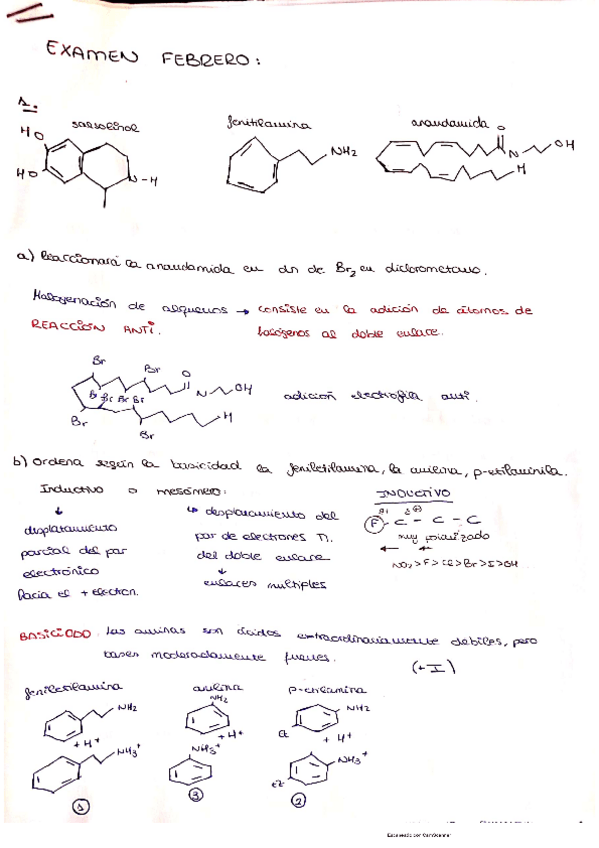 EXAMEN FEBRERO:
1.
salsolinol feniletilamina anandamida
HO HO N-H NH2 O N OH H
a) Reaccionará la anandamida en dn de Br2 en diclorometano.
Halogenación de alquenos → consiste en la adición de átomos de
REACCIÓN ANTI. halógenos al doble enlace.
Br Br O
Br Br Br N OH
adición electrofila anti.
Br H
Br
b) Ordena según la basicidad la feniletilamina, la anilina, p-etilanilina.
Inductivo o mesómero: INDUCTIVO
desplazamiento del F C - C - C
desplazamiento par de electrones π. muy polarizado
parcial del par del doble enlace
electrónico NO2 > F > Cl > Br > I > OH ...
hacia el + electron. enlaces multiples
BASICIDAD. Las aminas son ácidos extraordinariamente débiles, pero
bases moderadamente fuertes. (+I)
feniletilamina anilina p-etilamina
NH2 NH2 NH2
+ H+ + H+ Et + H+
NH3+ NH3+ NH3+
Et
1 3 2
Escaneado con CamScanner